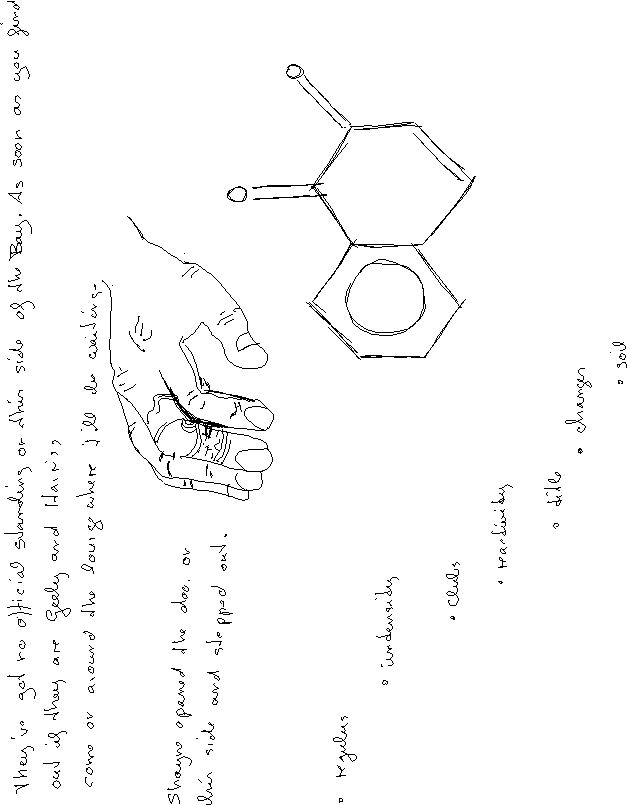 They've got no official standing on this side of the Bay. As soon as you find
out if they are Geely and Harris,
come on around the lounge where I'll be waiting.
Shayne opened the door on
his side and stepped out.
• regulus
• clubs
• reactivity
• title
• changes
• soil